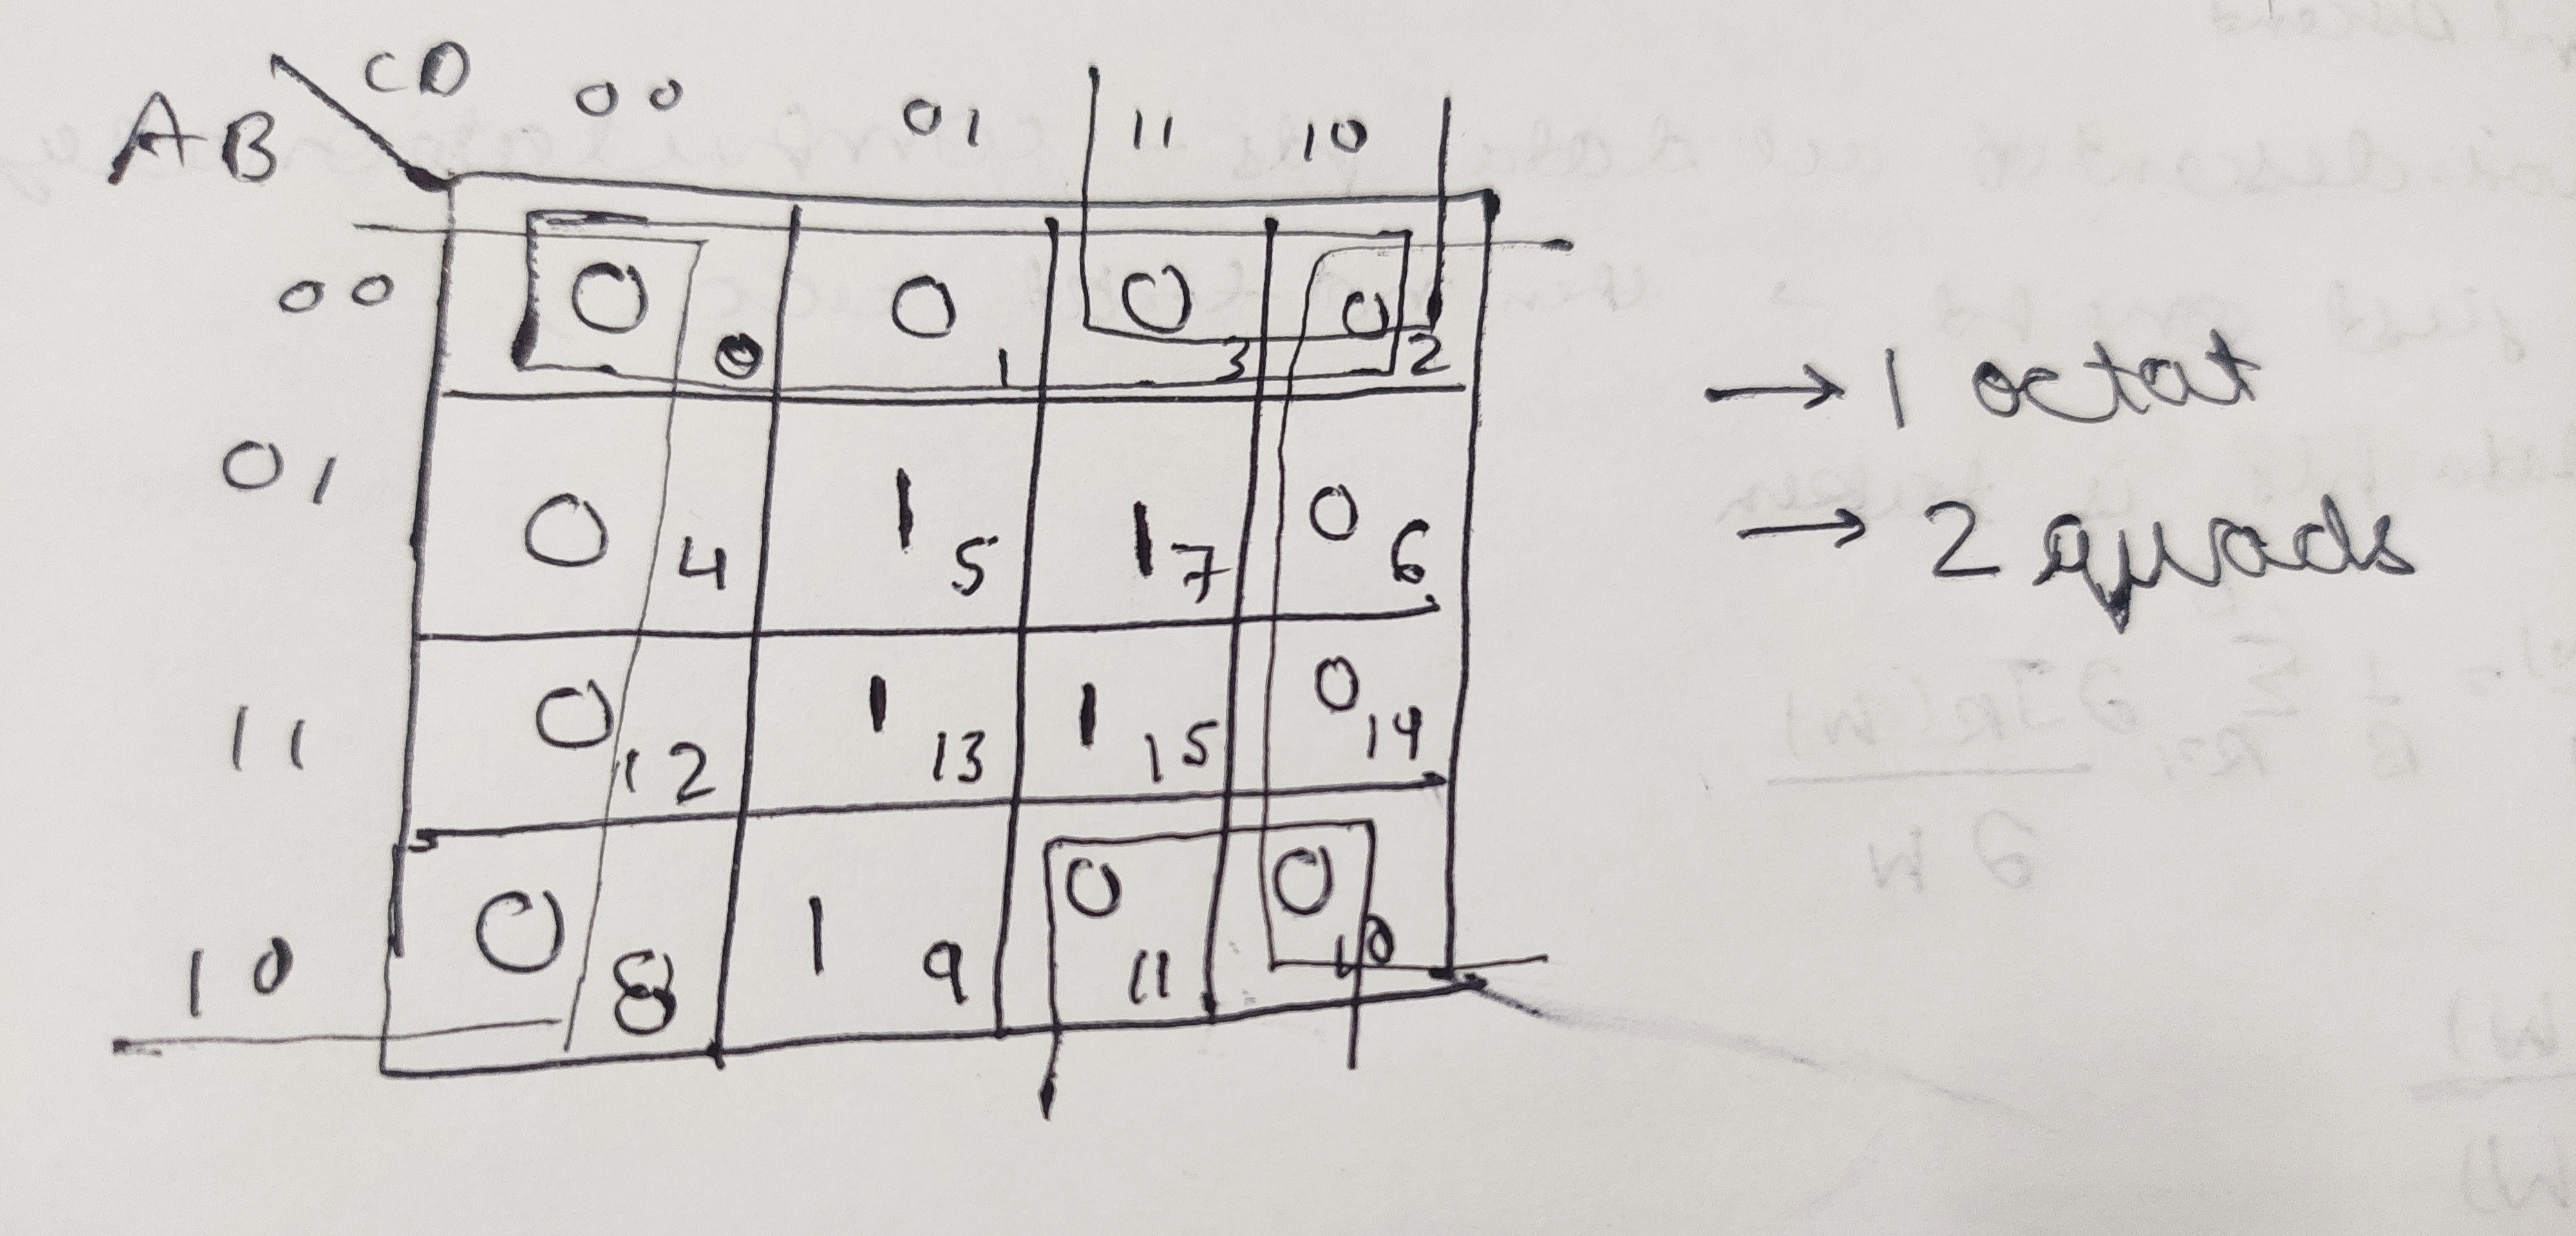 CD
AB 00 01 11 10
00 0 0 0 1 0 3 0 2
01 0 4 1 5 1 7 0 6
11 0 12 1 13 1 15 0 14
10 0 8 1 9 0 11 0 10
→ 1 octat
→ 2 quads